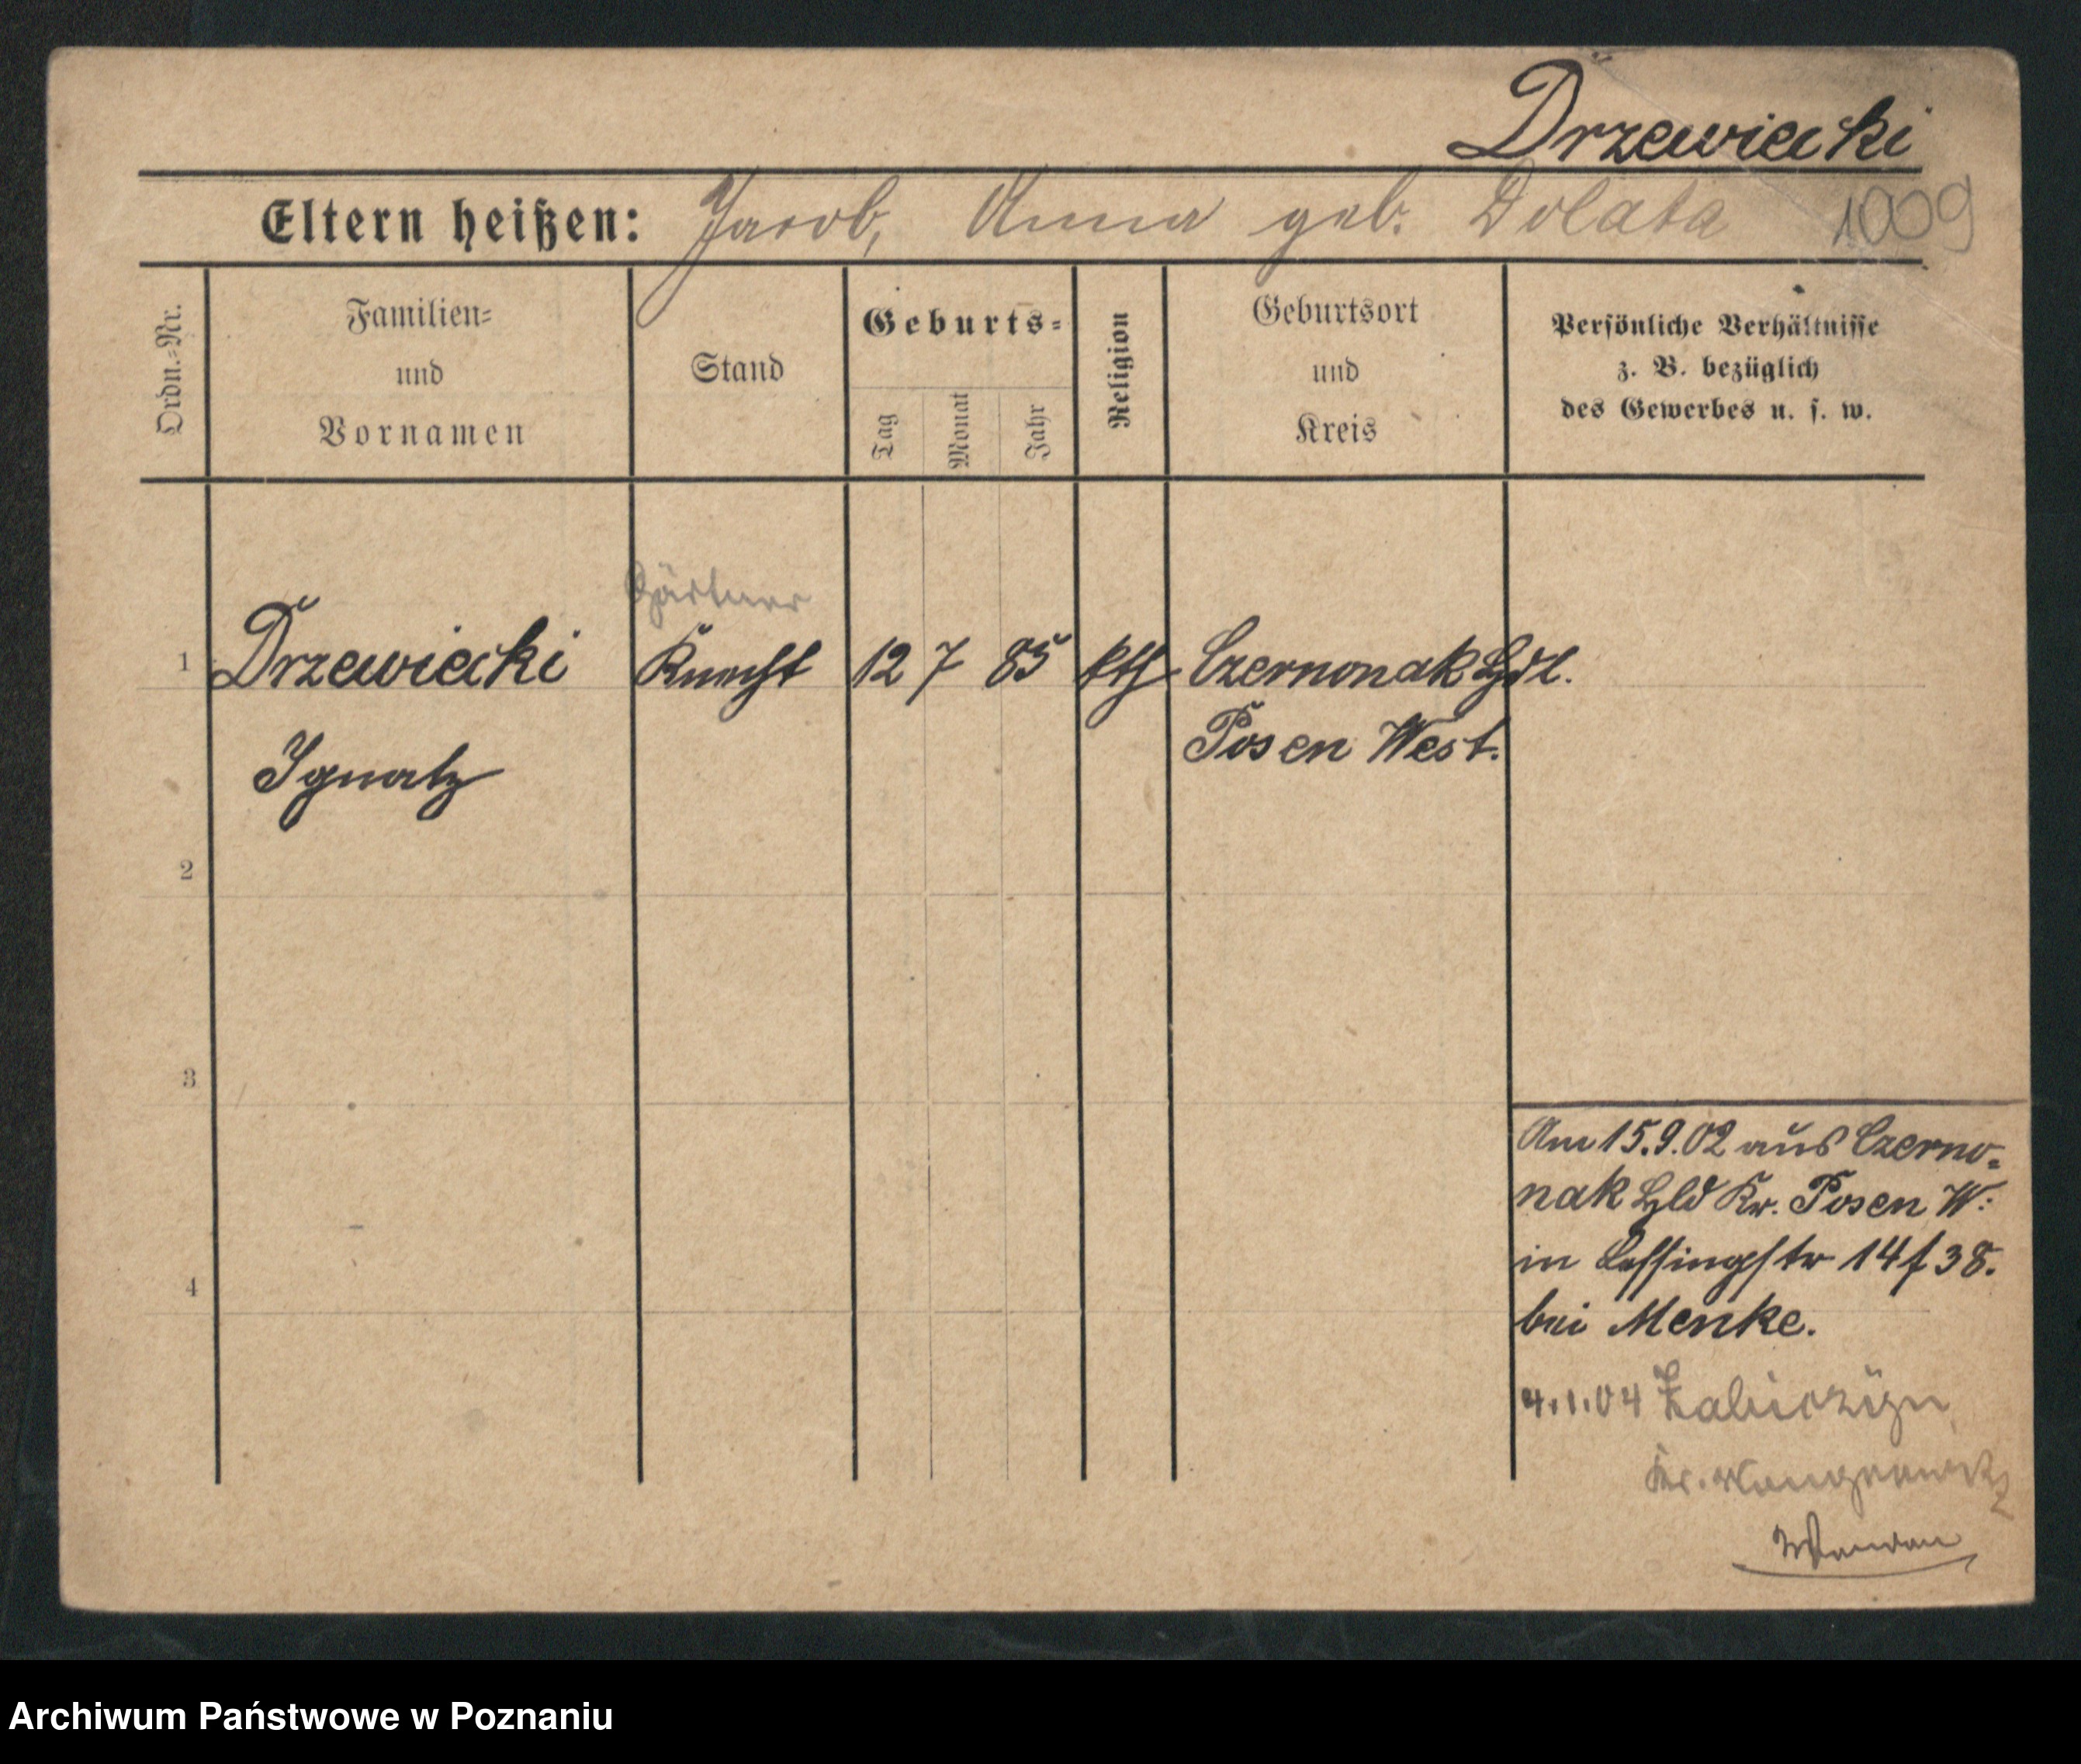 Drzewiecki
Eltern heißen: Jacob, Anna geb. Dolata 1009
Ordn.-Nr.
Familien-
und
Vornamen
Stand
Geburts-
Tag
Monat
Jahr
Religion
Geburtsort
und
Kreis
Persönliche Verhältnisse
z. B. bezüglich
des Gewerbes u. s. w.
Gärtner
1 Drzewiecki Knecht 12 7 85 kth Czernonak Hdl.
Posen West.
Ignatz
2
3
4
Am 15.9.02 aus Czerno-
nak Hld Kr. Posen W:
in Lessingstr 14 f 38.
bei Menke.
4.1.04
Kr. Wongrowitz
Archiwum Państwowe w Poznaniu